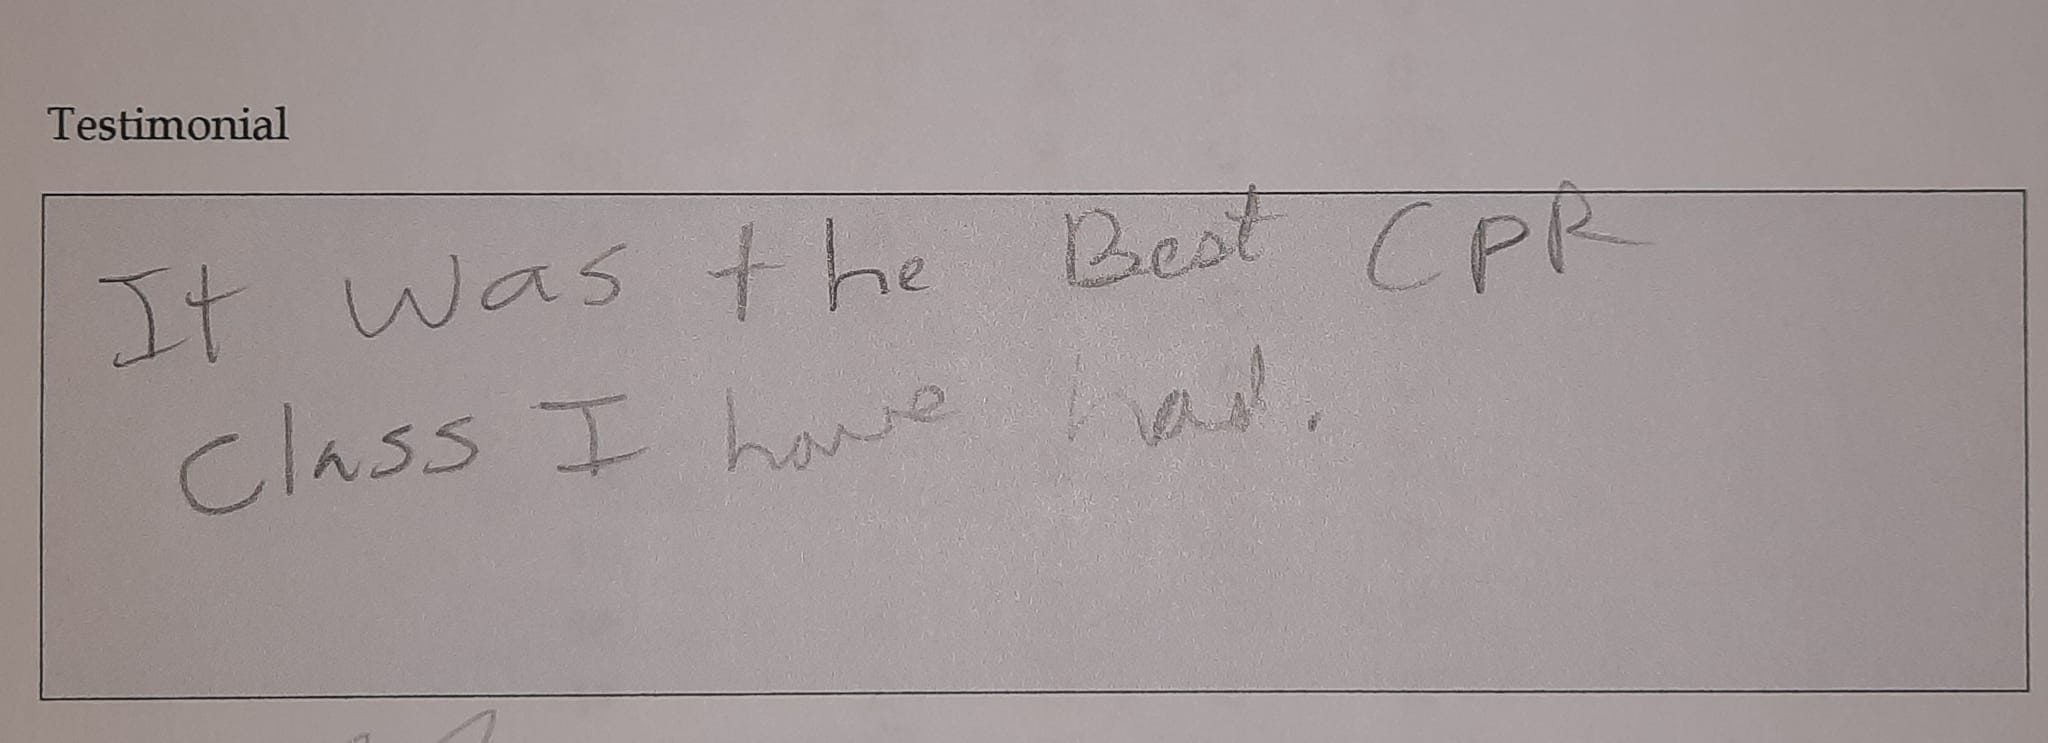 Testimonial
It was the Best CPR
Class I have had.